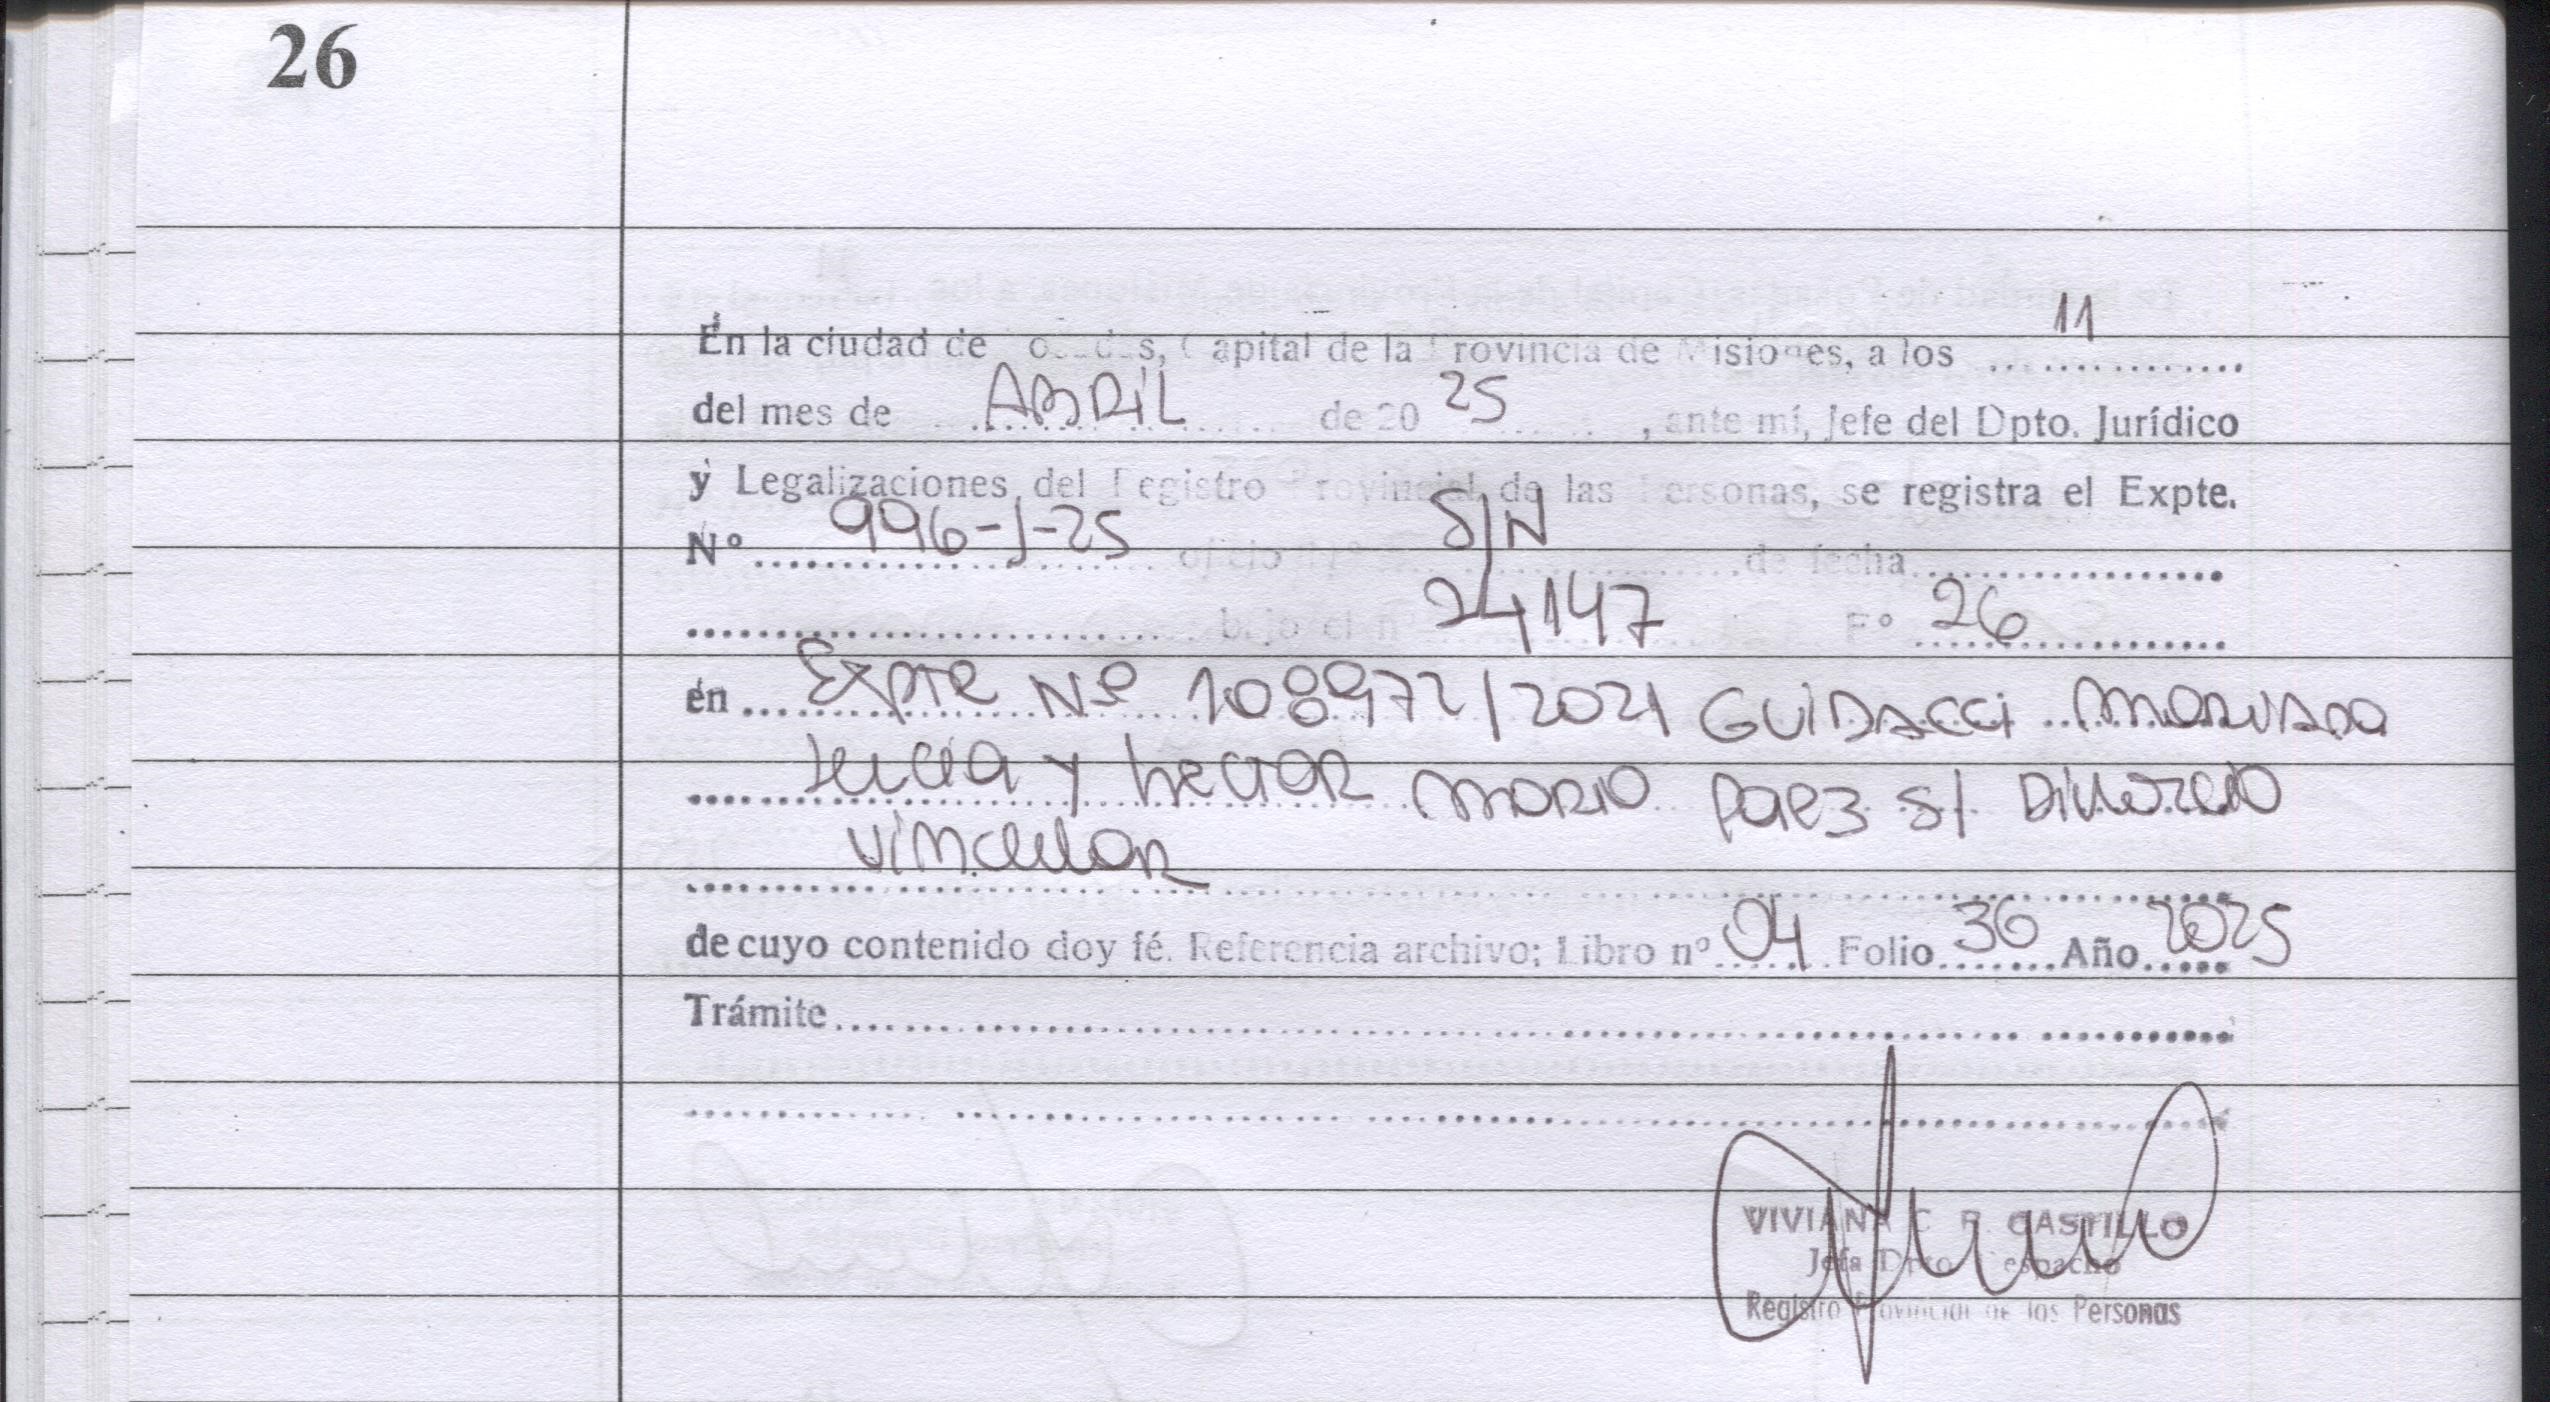 26
En la ciudad de Posadas, Capital de la Provincia de Misiones, a los 11
del mes de ABRIL de 2025, ante mí, Jefe del Dpto. Jurídico
y Legalizaciones del Registro Provincial de las Personas, se registra el Expte.
Nº 996-J-25 oficio nº S/N de fecha
bajo el nº 24147 Fº 26
en Expte Nº 108972/2021 GUIDACCI
Lucia y Hector Mario Paez S/ Divorcio
Vincular
de cuyo contenido doy fé. Referencia archivo; Libro nº 04 Folio 36 Año 2025
Trámite
VIVIANA C. R. CASTILLO
Jefa Dpto. Despacho
Registro Provincial de los Personas